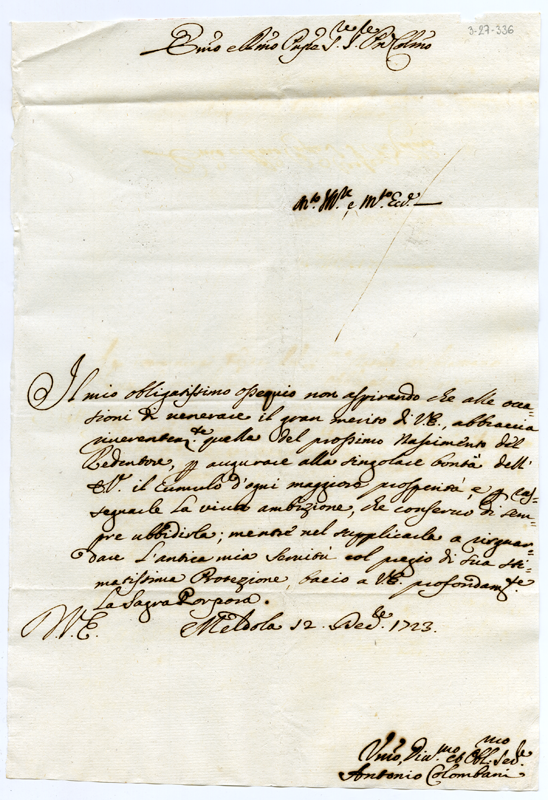 3-27-336
Emo e Rmo Prpe Sre Sre Pn Colmo
Mto Illre e Mto Ecc.
Il mio obligatissimo ossequio non aspirando che alle occa=
sioni di venerare il gran merito di VE., abbraccia
riverentemte. quella del prossimo Nascimento del
Redentore, p augurare alla singolare bontà dell'
E.V. il cumulo d'ogni maggiore prosperità, e p ras=
segnarle la viva ambizione, che conservo di sem=
pre ubbidirla; mentre nel supplicarla a riguar=
dare l'antica mia servitù col pregio di sua sti=
matissima Protezione, bacio a VE profondamte.
La Sagra Porpora.
V.E. Meldola 12. Dece. 1723.
Vmo, Divmo et Obl.mo Sede.
Antonio Colombani